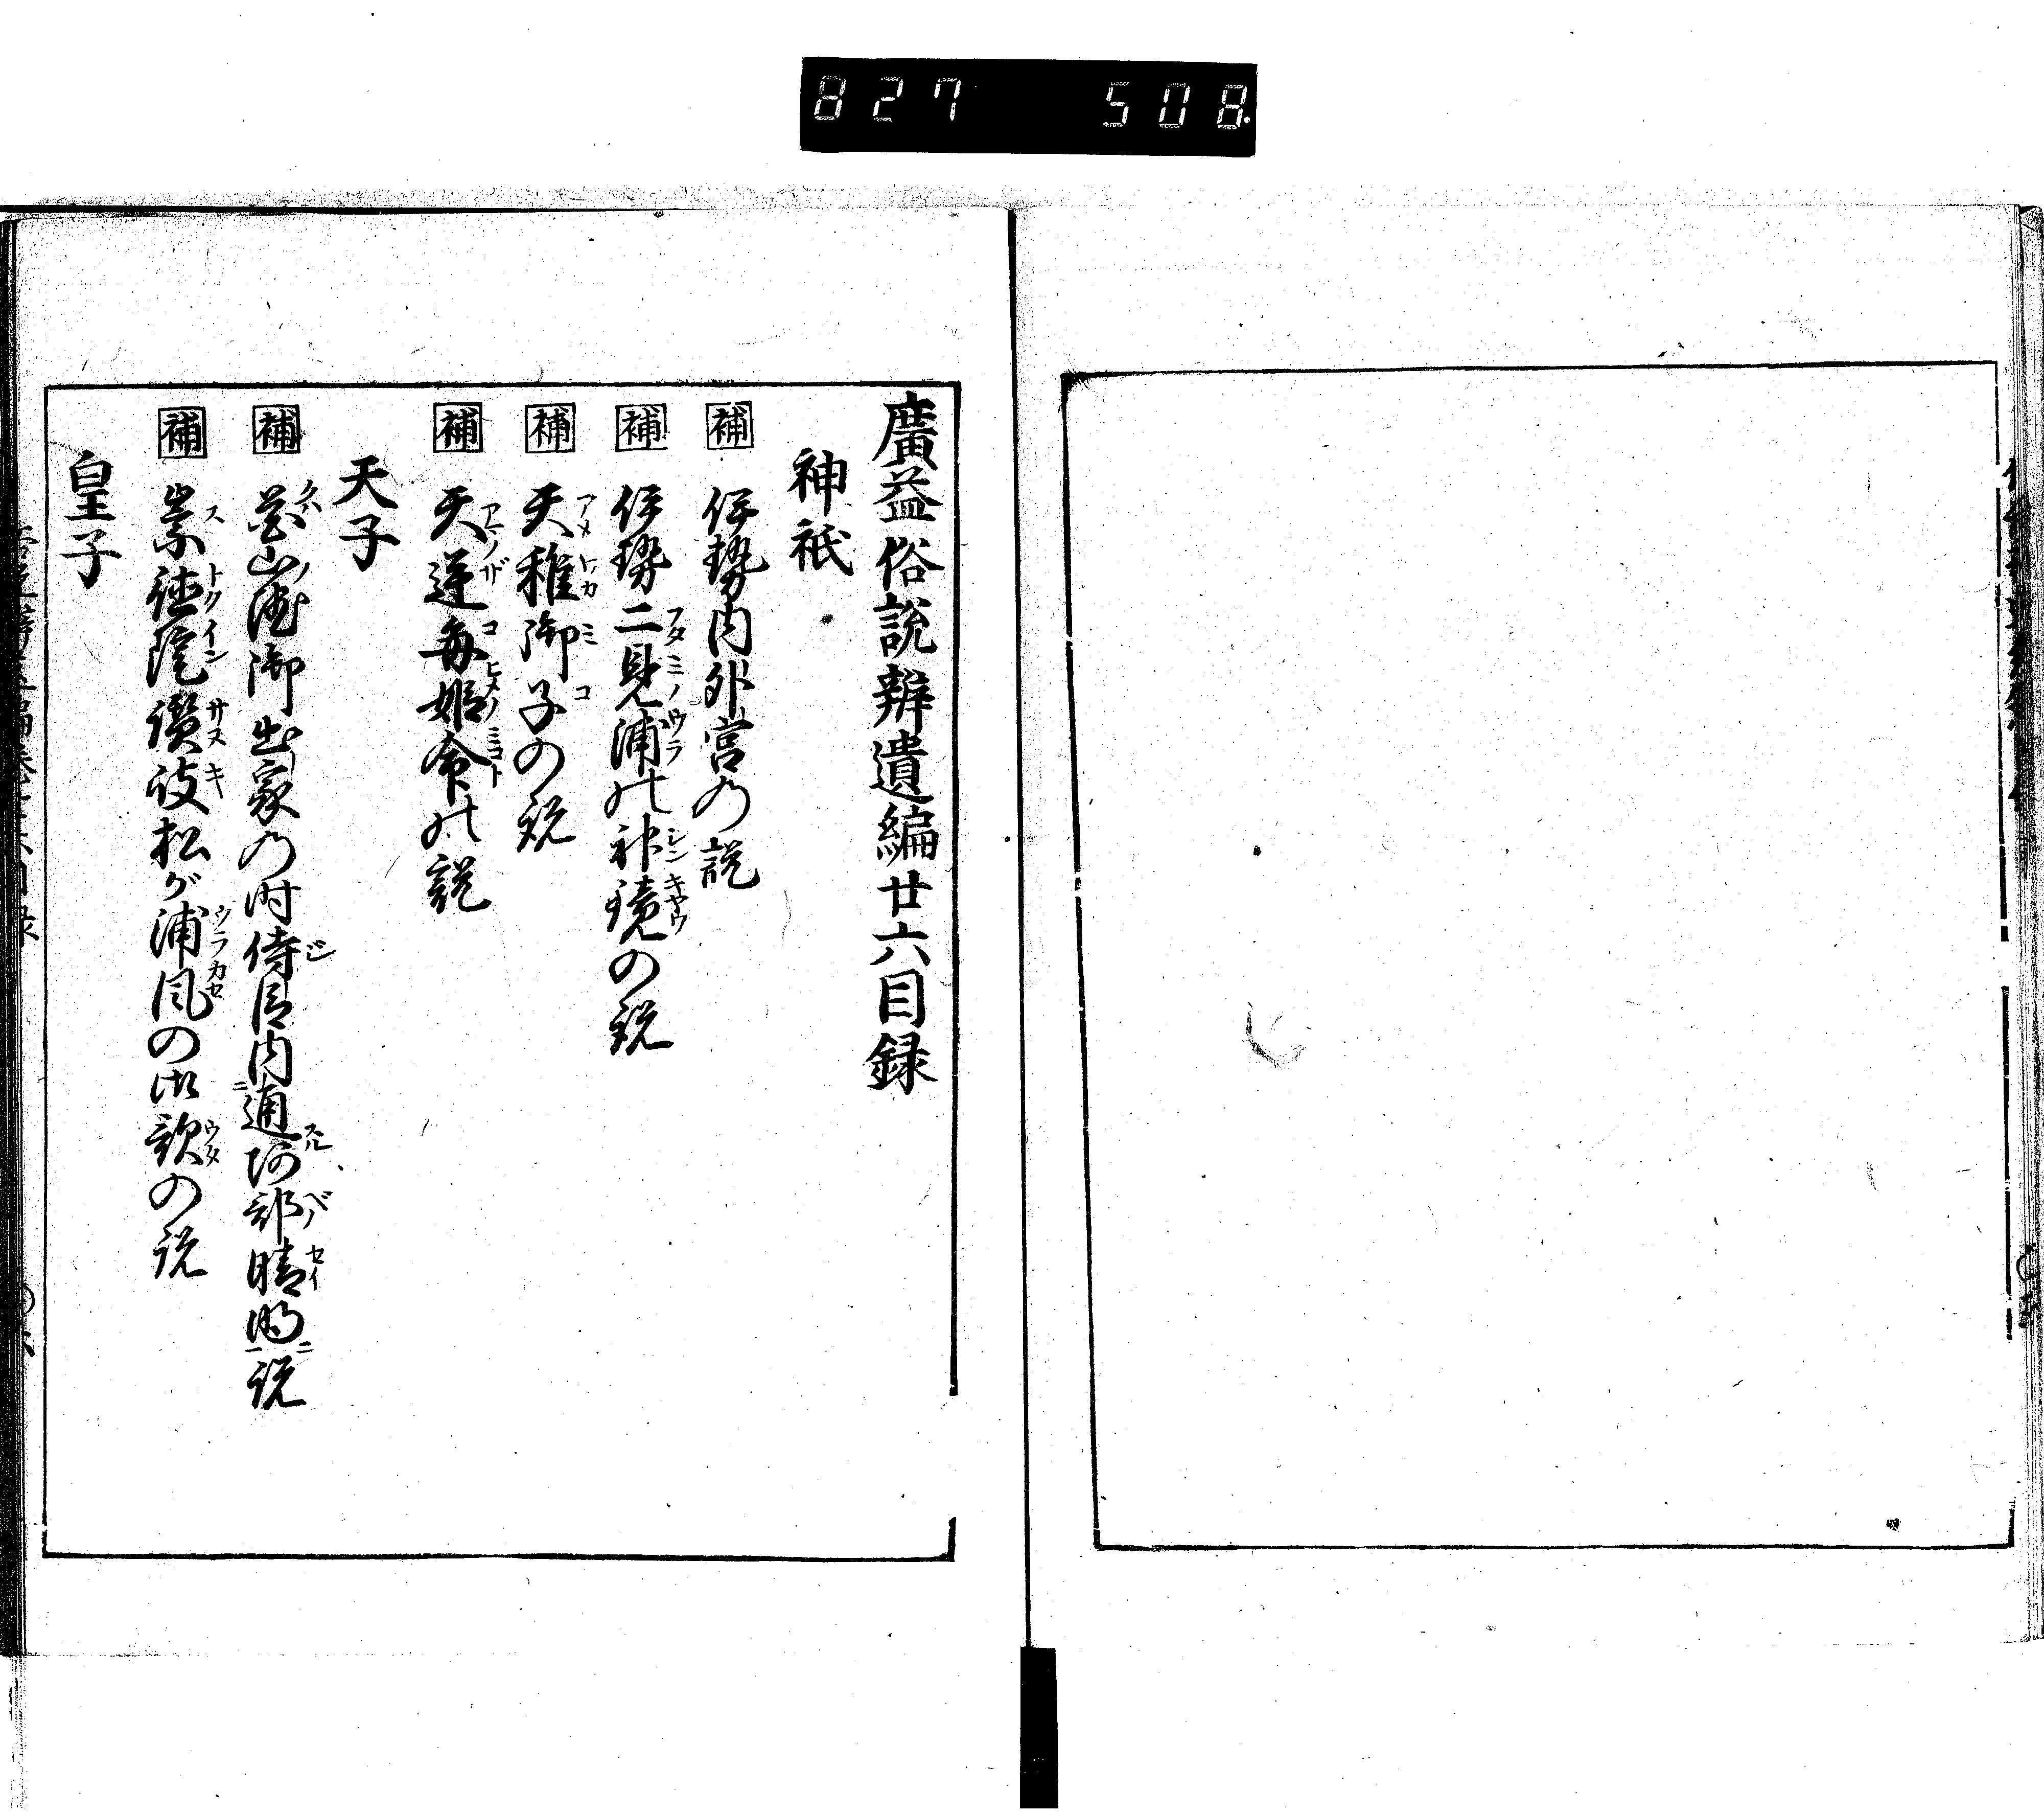 827 508
廣益俗說辨遺編廿六目録
神祇
補 伊勢内外宮の説
補 伊勢二見浦の神鏡の説
補 天稚御子の説
補 天逆毎姫命の説
天子
補 花山院御出家の時侍臣内通阿部晴明説
補 崇徳院讃岐松が浦風の御歌の説
皇子